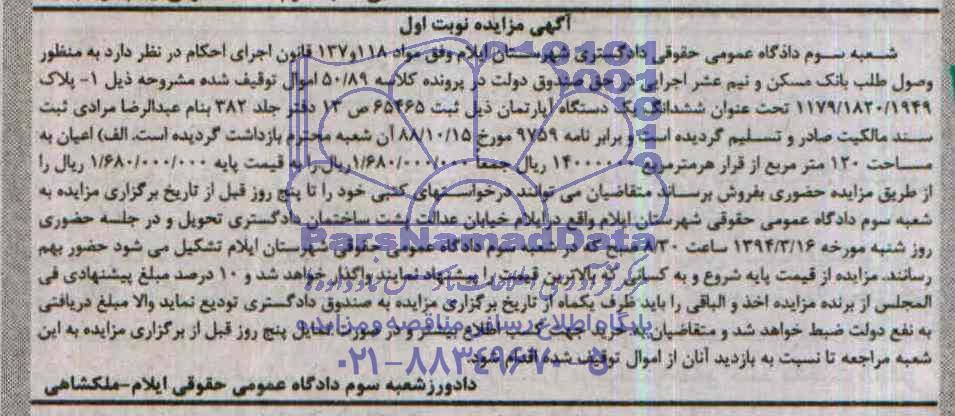 آگهی مزایده نوبت اول
شعبه سوم دادگاه عمومی حقوقی دادگستری شهرستان ایلام وفق مواد ۱۱۸ و ۱۳۷ قانون اجرای احکام در نظر دارد به منظور
وصول طلب بانک مسکن و نیم عشر اجرایی در حق صندوق دولت در پرونده کلاسه ۵۰/۸۹ اموال توقیف شده مشروحه ذیل ۱- پلاک
۱۱۷۹/۱۸۲۰/۱۹۴۹ تحت عنوان ششدانگ یک دستگاه آپارتمان ذیل ثبت ۶۵۴۶۵ ص ۱۳ دفتر جلد ۳۸۲ بنام عبدالرضا مرادی ثبت
سند مالکیت صادر و تسلیم گردیده است و برابر نامه ۹۷۵۹ مورخ ۸۸/۱۰/۱۵ آن شعبه محترم بازداشت گردیده است. الف) اعیان به
مساحت ۱۲۰ متر مربع از قرار هرمترمربع ۱۴۰۰۰۰۰۰ ریال جمعا ۱/۶۸۰/۰۰۰/۰۰۰ ریال را به قیمت پایه ۱/۶۸۰/۰۰۰/۰۰۰ ریال را
از طریق مزایده حضوری بفروش برساند متقاضیان می توانند درخواستهای کتبی خود را تا پنج روز قبل از تاریخ برگزاری مزایده به
شعبه سوم دادگاه عمومی حقوقی شهرستان ایلام واقع در ایلام خیابان عدالت پشت ساختمان دادگستری تحویل و در جلسه حضوری
روز شنبه مورخه ۱۳۹۴/۳/۱۶ ساعت ۸/۳۰ صبح که در شعبه سوم دادگاه عمومی حقوقی شهرستان ایلام تشکیل می شود حضور بهم
رسانند. مزایده از قیمت پایه شروع و به کسانی که بالاترین قیمت را پیشنهاد نمایند واگذار خواهد شد و ۱۰ درصد مبلغ پیشنهادی فی
المجلس از برنده مزایده اخذ و الباقی را باید ظرف یکماه از تاریخ برگزاری مزایده به صندوق دادگستری تودیع نماید والا مبلغ دریافتی
به نفع دولت ضبط خواهد شد و متقاضیان خرید جهت کسب اطلاع بیشتر و در صورت تمایل پنج روز قبل از برگزاری مزایده به این
شعبه مراجعه تا نسبت به بازدید آنان از اموال توقیف شده اقدام شود.
دادورز شعبه سوم دادگاه عمومی حقوقی ایلام-ملکشاهی
ParsNamadData
پایگاه اطلاع رسانی مناقصه و مزایده
۰۲۱-۸۸۳۴۹۶۷۰-۵